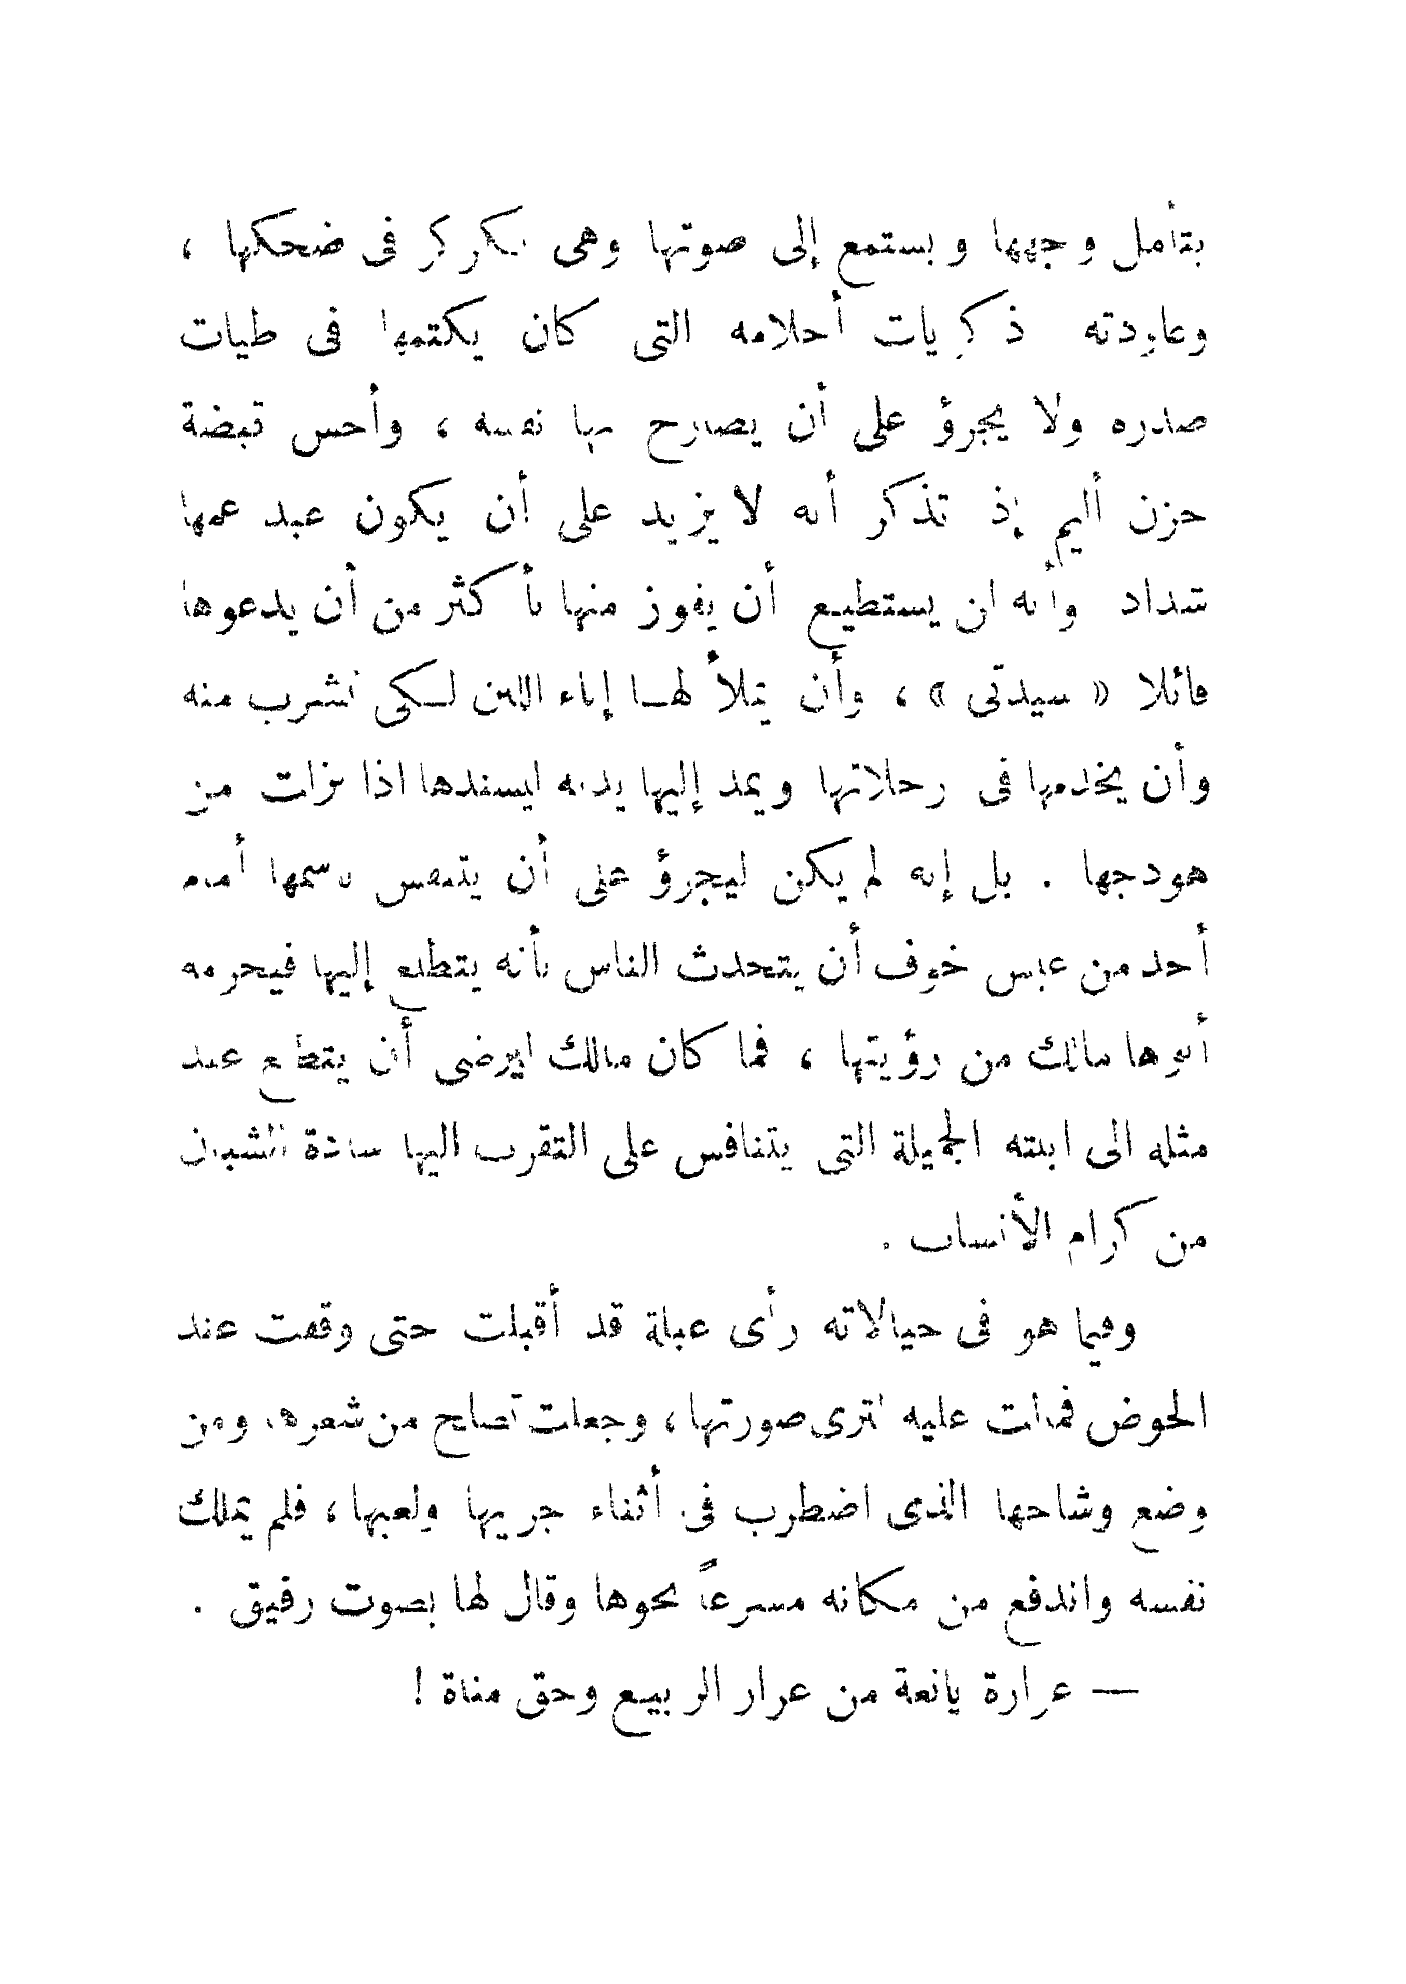 يتأمل وجهها ويستمع إلى صوتها وهى تكركر فى ضحكها ،
وعاودته ذكريات أحلامه التى كان يكتمها فى طيات
صدره ولا يجرؤ على أن يصارح بها نفسه ، وأحس قبضة
حزن أليم إذ تذكر أنه لا يزيد على أن يكون عبد عمها
شداد وأنه لن يستطيع أن يفوز منها بأكثر من أن يدعوها
قائلا « سيدتى » ، وأن يملأ لها إناء اللبن لكى تشرب منه
وأن يخدمها فى رحلاتها ويمد إليها يده ليسندها اذا نزلت من
هودجها . بل إنه لم يكن ليجرؤ على أن يتنفس باسمها أمام
أحد من عبس خوف أن يتحدث الناس بأنه يتطلع إليها فيحرمه
أبوها مالك من رؤيتها ، فما كان مالك ليرضى أن يتطلع عبد
مثله الى ابنته الجميلة التى يتنافس على التقرب اليها سادة الشبان
من كرام الأنساب .
وفيما هو فى خيالاته رأى عبلة قد أقبلت حتى وقفت عند
الحوض فمالت عليه لترى صورتها ، وجعلت تصلح من شعرها ومن
وضع وشاحها الذى اضطرب فى أثناء جريها ولعبها ، فلم يملك
نفسه واندفع من مكانه مسرعاً نحوها وقال لها بصوت رفيق .
— عرارة يانعة من عرار الربيع وحق مناة !